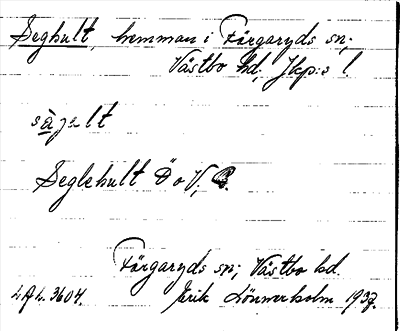 Seghult, hemman i Färgaryds sn;
Västbo hd, Jkp:s l
sàgəlt
Seglehult Ö o V,
Färgaryds sn; Västbo hd.
LAL 3604. Erik Lönnerholm 1937.